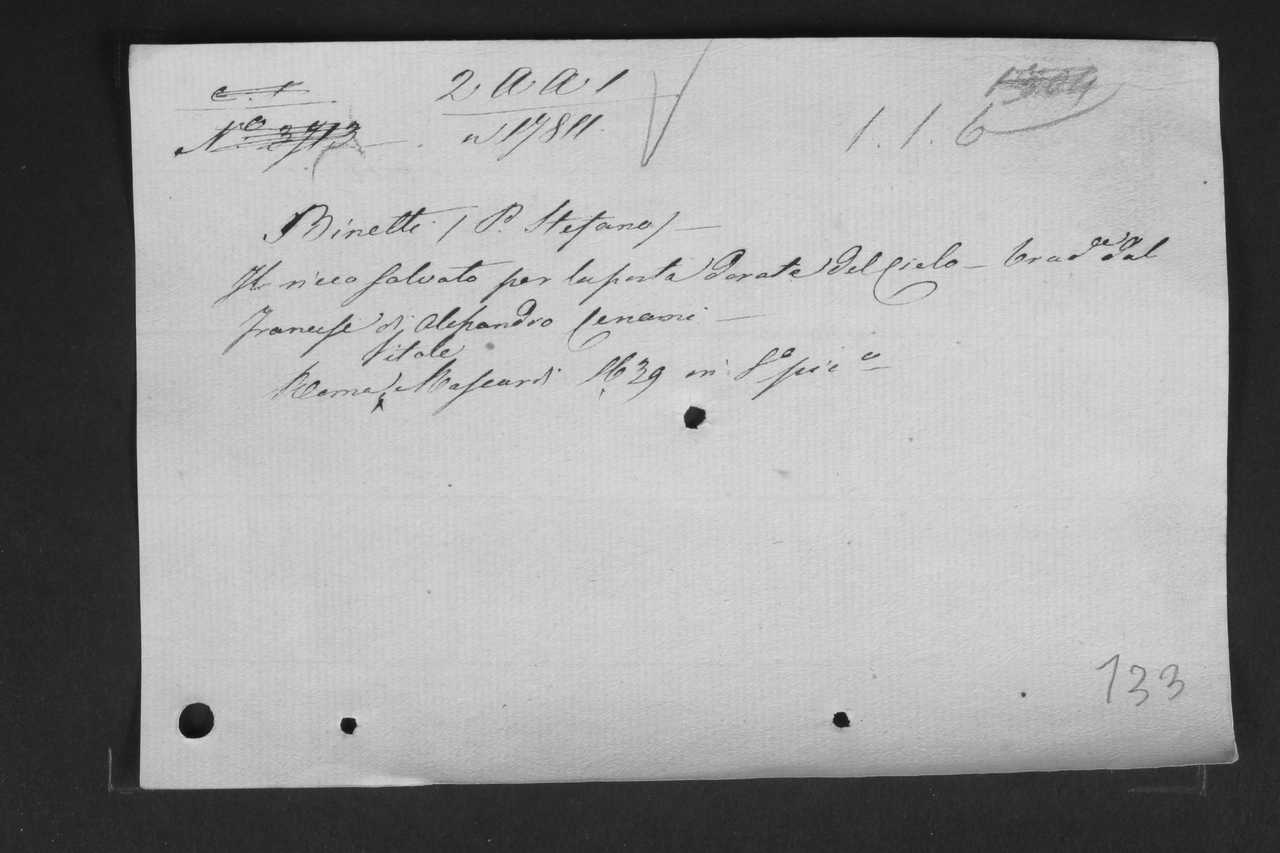 c. 1
2 A A 1
1304
No 3713
n 1781
1. 1. 6
Binetti (P. Stefano) —
Il ricco salvato per la porta dorata del Cielo — Trad.e dal
Francese di Alessandro Cenami —
Vitale
Roma Mascardi 1639 in 8o pic.o
133